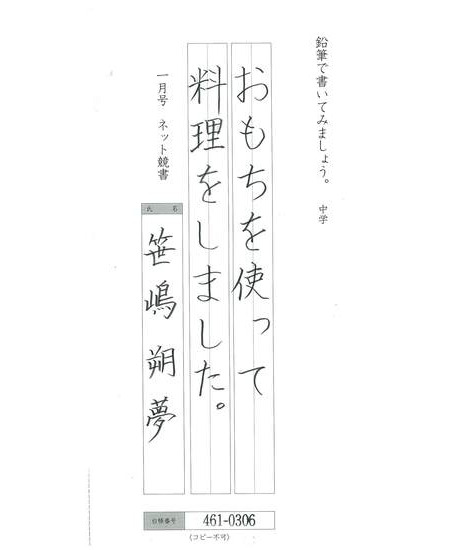 鉛筆で書いてみましょう。 中学
おもちを使って
料理をしました。
一月号 ネット競書
氏 名
笹嶋朔夢
合格番号 461-0306
(コピー不可)